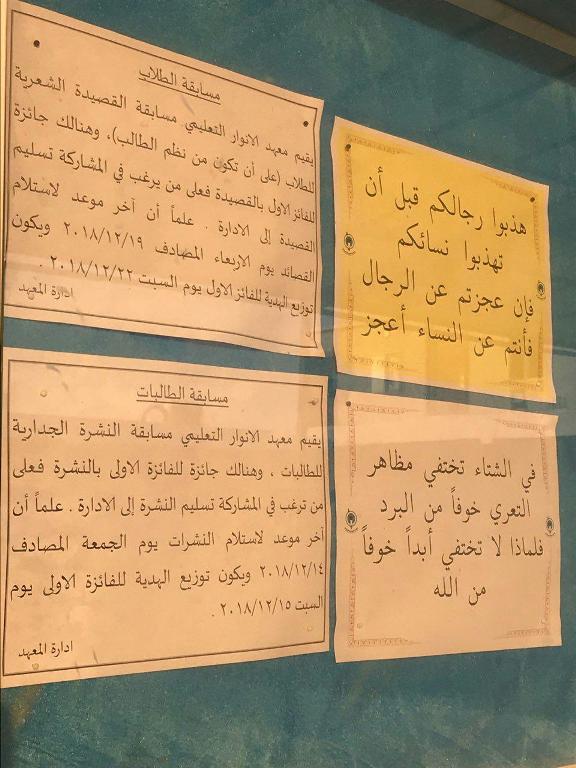 مسابقة الطلاب
يقيم معهد الانوار التعليمي مسابقة القصيدة الشعرية
للطلاب (على أن تكون من نظم الطالب)، وهنالك جائزة
للفائز الاول بالقصيدة فعلى من يرغب في المشاركة تسليم
القصيدة إلى الادارة . علماً أن آخر موعد لاستلام
القصائد يوم الاربعاء المصادف ٢٠١٨/١٢/١٩ ويكون
توزيع الهدية للفائز الاول يوم السبت ٢٠١٨/١٢/٢٢ .
ادارة المعهد
هذبوا رجالكم قبل أن
تهذبوا نسائكم
فإن عجزتم عن الرجال
فأنتم عن النساء أعجز
مسابقة الطالبات
يقيم معهد الانوار التعليمي مسابقة النشرة الجدارية
للطالبات ، وهنالك جائزة للفائزة الاولى بالنشرة فعلى
من ترغب في المشاركة تسليم النشرة إلى الادارة . علماً أن
آخر موعد لاستلام النشرات يوم الجمعة المصادف
٢٠١٨/١٢/١٤ ويكون توزيع الهدية للفائزة الاولى يوم
السبت ٢٠١٨/١٢/١٥ .
ادارة المعهد
في الشتاء تختفي مظاهر
التعري خوفاً من البرد
فلماذا لا تختفي أبداً خوفاً
من الله